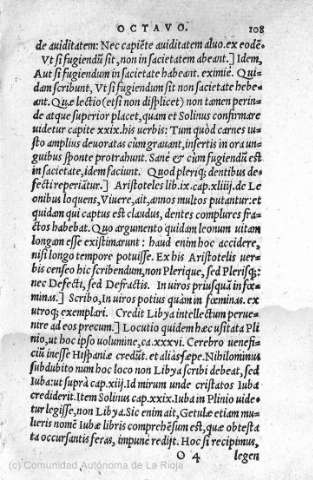 OCTAVO. 108
de auiditatem: Nec capiẽte auiditatem aluo. ex eodẽ.
Vt si fugiendũ sit, non in sacietatem abeant.] Idem,
Aut si fugiendum in sacietate habeant. eximiè. Qui-
dam scribunt, Vt si fugiendum sit non sacietate hebe-
ant. Quæ lectio (etsi non displicet) non tamen perin-
de atque superior placet, quam et Solinus confirmare
uidetur capite xxix. his uerbis: Tum quòd carnes iu-
sto amplius deuoratas cùm grauant, insertis in ora un-
guibus sponte protrahunt. Sanè & cùm fugiendũ est
in sacietate, idem faciunt. Quod plerisq; dentibus de-
fecti reperiãtur.] Aristoteles lib. ix. cap. xliiij. de Le
onibus loquens, Viuere, ait, annos multos putantur: et
quidam qui captus est claudus, dentes complures fra-
ctos habebat. Quo argumento quidam leonum uitam
longam esse existimarunt: haud enim hoc accidere,
nisi longo tempore potuisse. Ex his Aristotelis uer-
bis censeo hic scribendum, non Plerique, sed Plerisq;:
nec Defecti, sed Defractis. In uiros priusquã in fœ-
minas.] Scribo, In uiros potius quàm in fœminas. ex
utroq; exemplari. Credit Libya intellectum perue-
nire ad eos precum.] Locutio quidem hæc usitata Pli
nio, ut hoc ipso uolumine, ca. xxxvi. Cerebro uenefi-
ciũ inesse Hispaniæ credũt. et aliàs sæpe. Nihilominus
subdubito num hoc loco non Libya scribi debeat, sed
Iuba: ut suprà cap. xiij. Id mirum unde cristatos Iuba
crediderit. Item Solinus cap. xxix. Iuba in Plinio uide-
tur legisse, non Libya. Sic enim ait, Getulæ etiam mu-
lieris nomẽ Iubæ libris comprehẽsum est, quæ obtesta
ta occursantis feras, impunè redijt. Hoc si recipimus,
O 4 legen
(c) Comunidad Autónoma de La Rioja